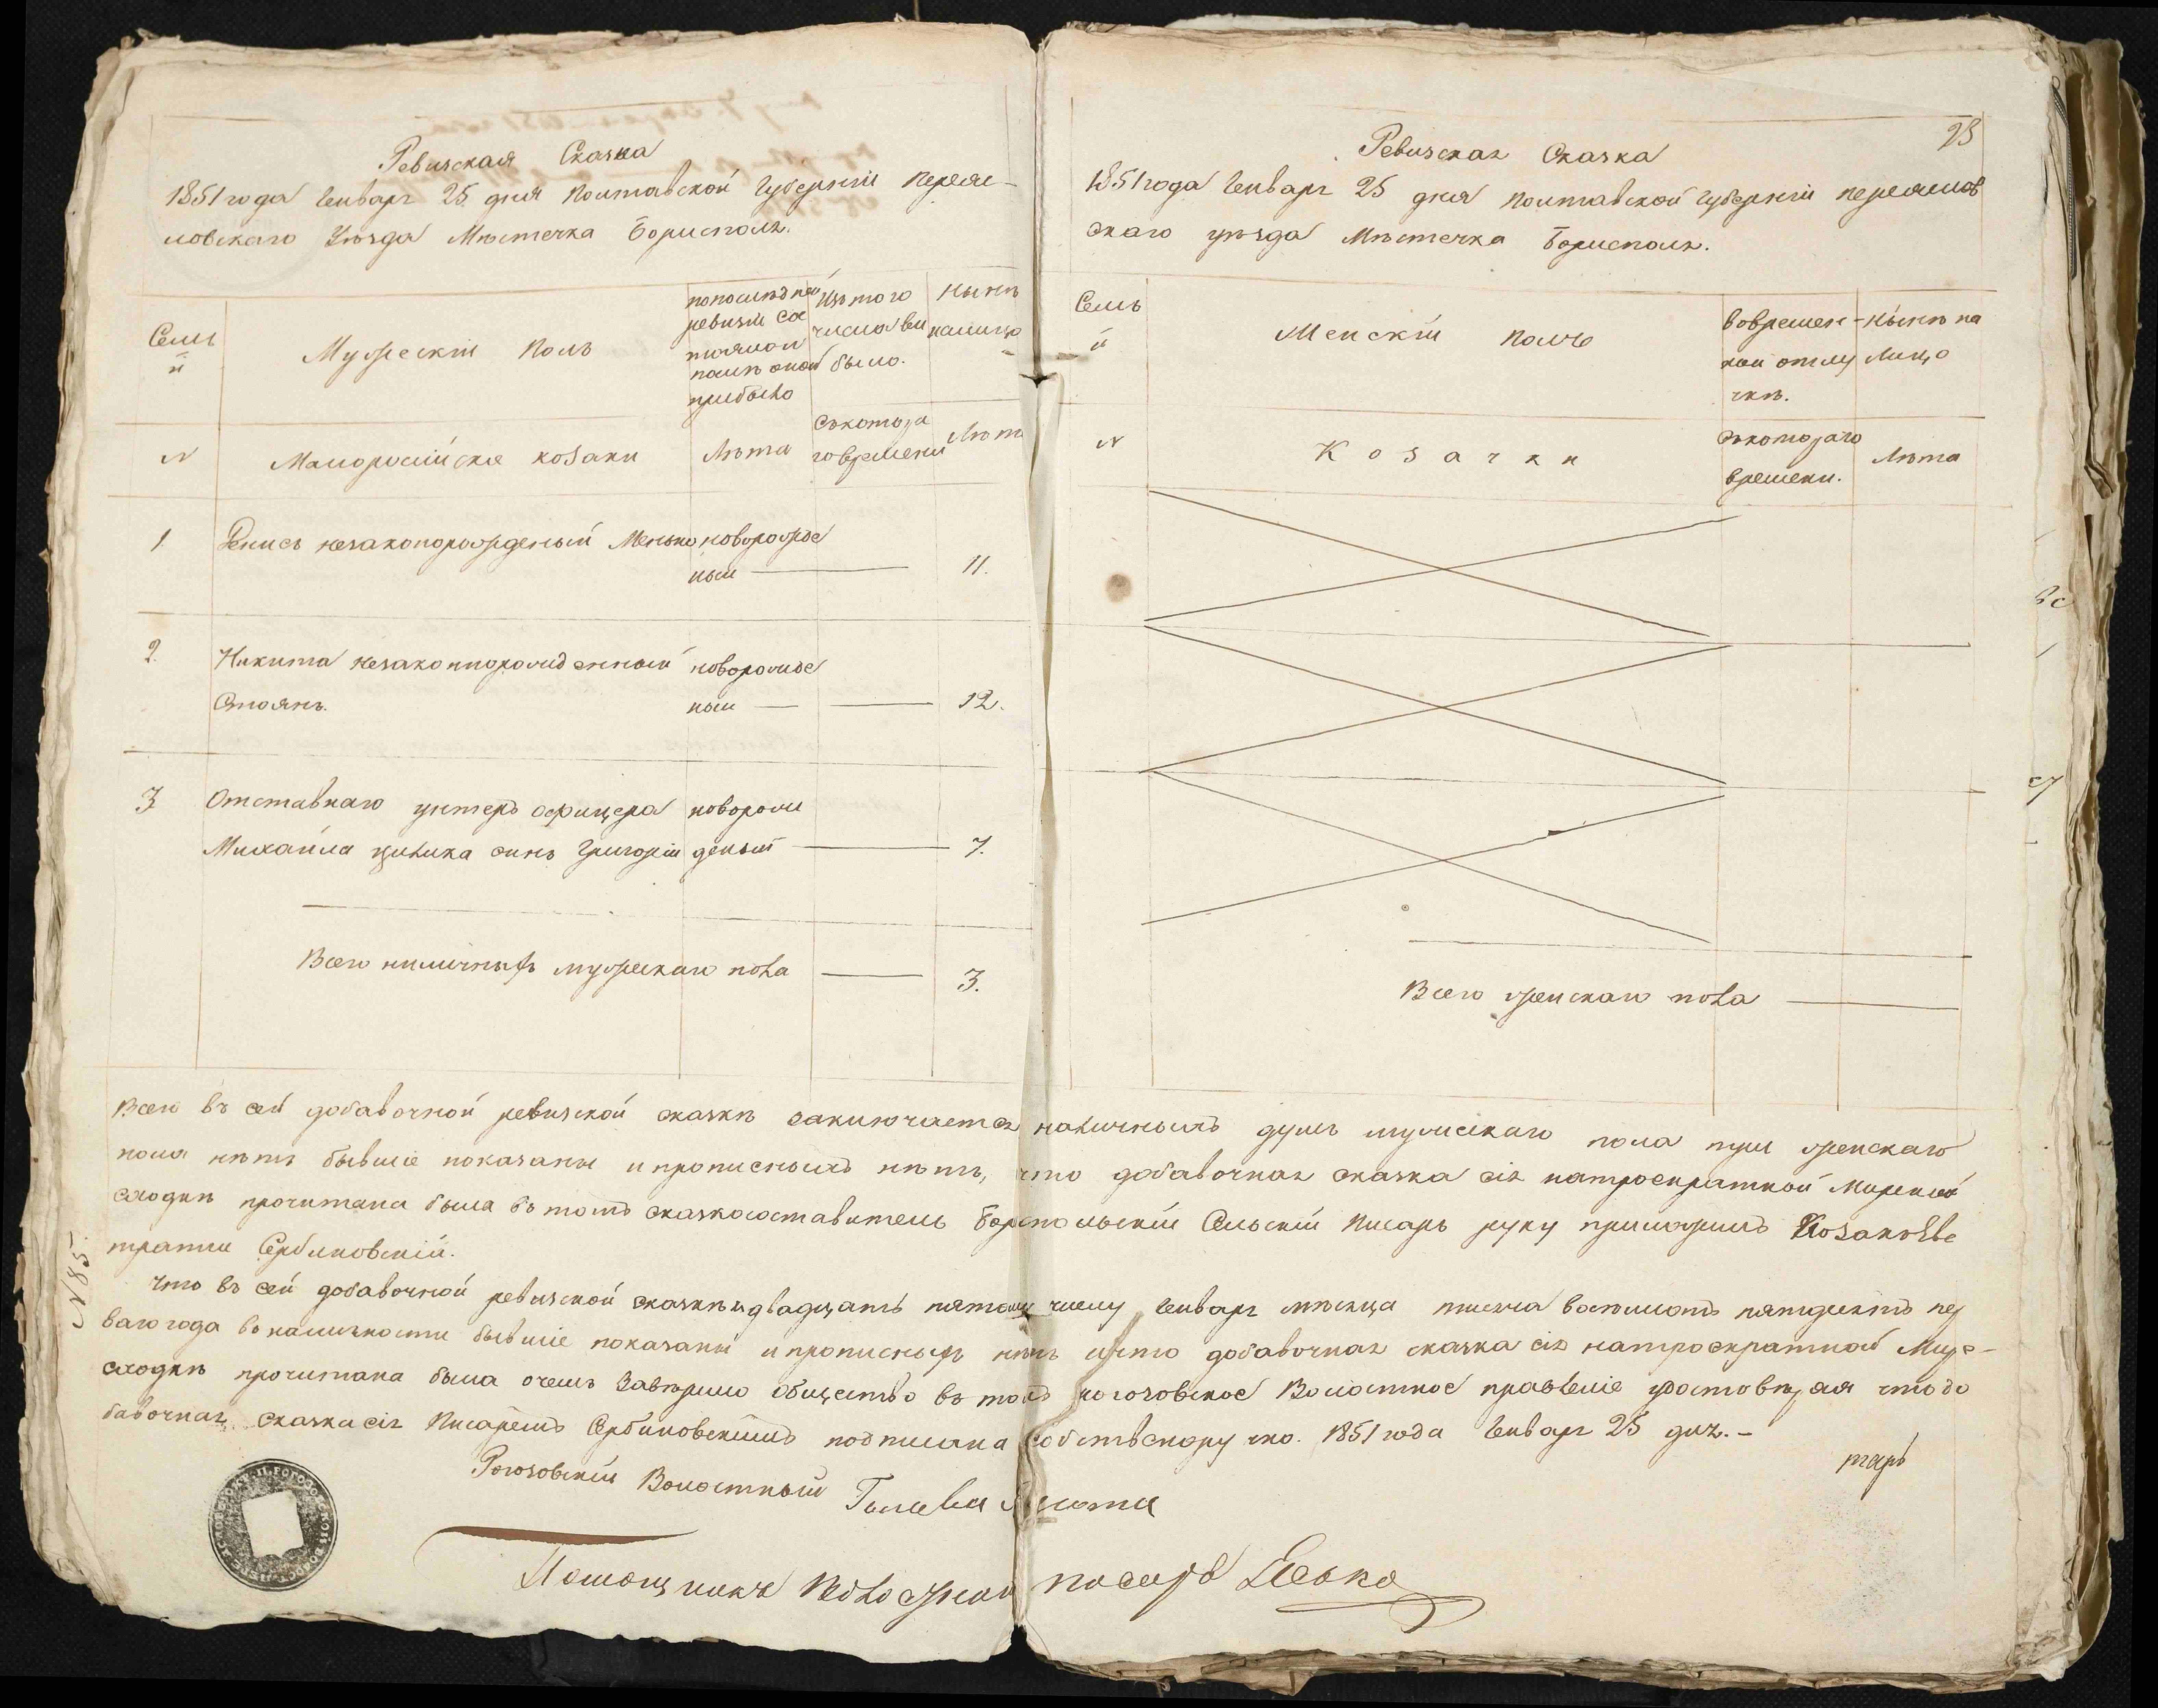 Ревизская Сказка
1851 года Генваря 25 дня Полтавской Губерніи Переяс-
ловскаго Уѣзда Мѣстечка Борисполя.
Семьи
Мужескій Полъ
по послѣдней ревизіи состояло и послѣ оной прибыло
Изъ того числа выбыло.
Нынѣ на лицо
N
Малоросійскіе козаки
Лѣта
Съ котораго времени
Лѣта
1 Денисъ незаконорожденый Менько новорожде
ный 11.
2. Никита незаконнорожденный новорожде
Стоянъ. ный 12.
3 Отставнаго унтеръ офицера новорож
Михайла Цилика синъ Григорій деный 7.
Всего наличныхъ мужескаго пола 3.
23
Ревизская Сказка
1851 года Генваря 25 дня Полтавской Губерніи Переяслов
скаго уѣзда Мѣстечка Борисполя.
Семьи
Женскій Полъ
Во времен-
ной отлу
чкѣ.
Нынѣ на
лицо
N
Козачки
Съ котораго
времени.
Лѣта
Всего женскаго пола
Всего въ сей добавочной ревизской сказкѣ заключается наличныхъ душъ мужескаго пола три женскаго
пола нѣтъ бывшіе показаны и прописныхъ нѣтъ, что добавочная сказка сія на троекратной Мирской
сходкѣ прочитана была въ томъ сказкосоставитель Борспольскій Сельскій Писарь руку приложилъ Козакъ Евс
тратій Сербиновскій.
N 85.
Что въ сей добавочной ревизской сказкѣ к двадцать пятому числу Генваря мѣсяца тысяча восемьсотъ пятдесятъ пер
ваго года въ наличности бывшіе показаны и прописныхъ нѣтъ и что добавочная сказка сія на троекратной Мирс-
сходкѣ прочитана была о чемъ завѣрило общество въ томъ Рогозовское Волостное правленіе удостовѣряя что до
бавочная сказка сія Писаремъ Сербиновскимъ подписана собственоручно. 1851 года Генваря 25 дня.-
Рогозовскій Волостный Голова
Помощникъ Волостной писарь